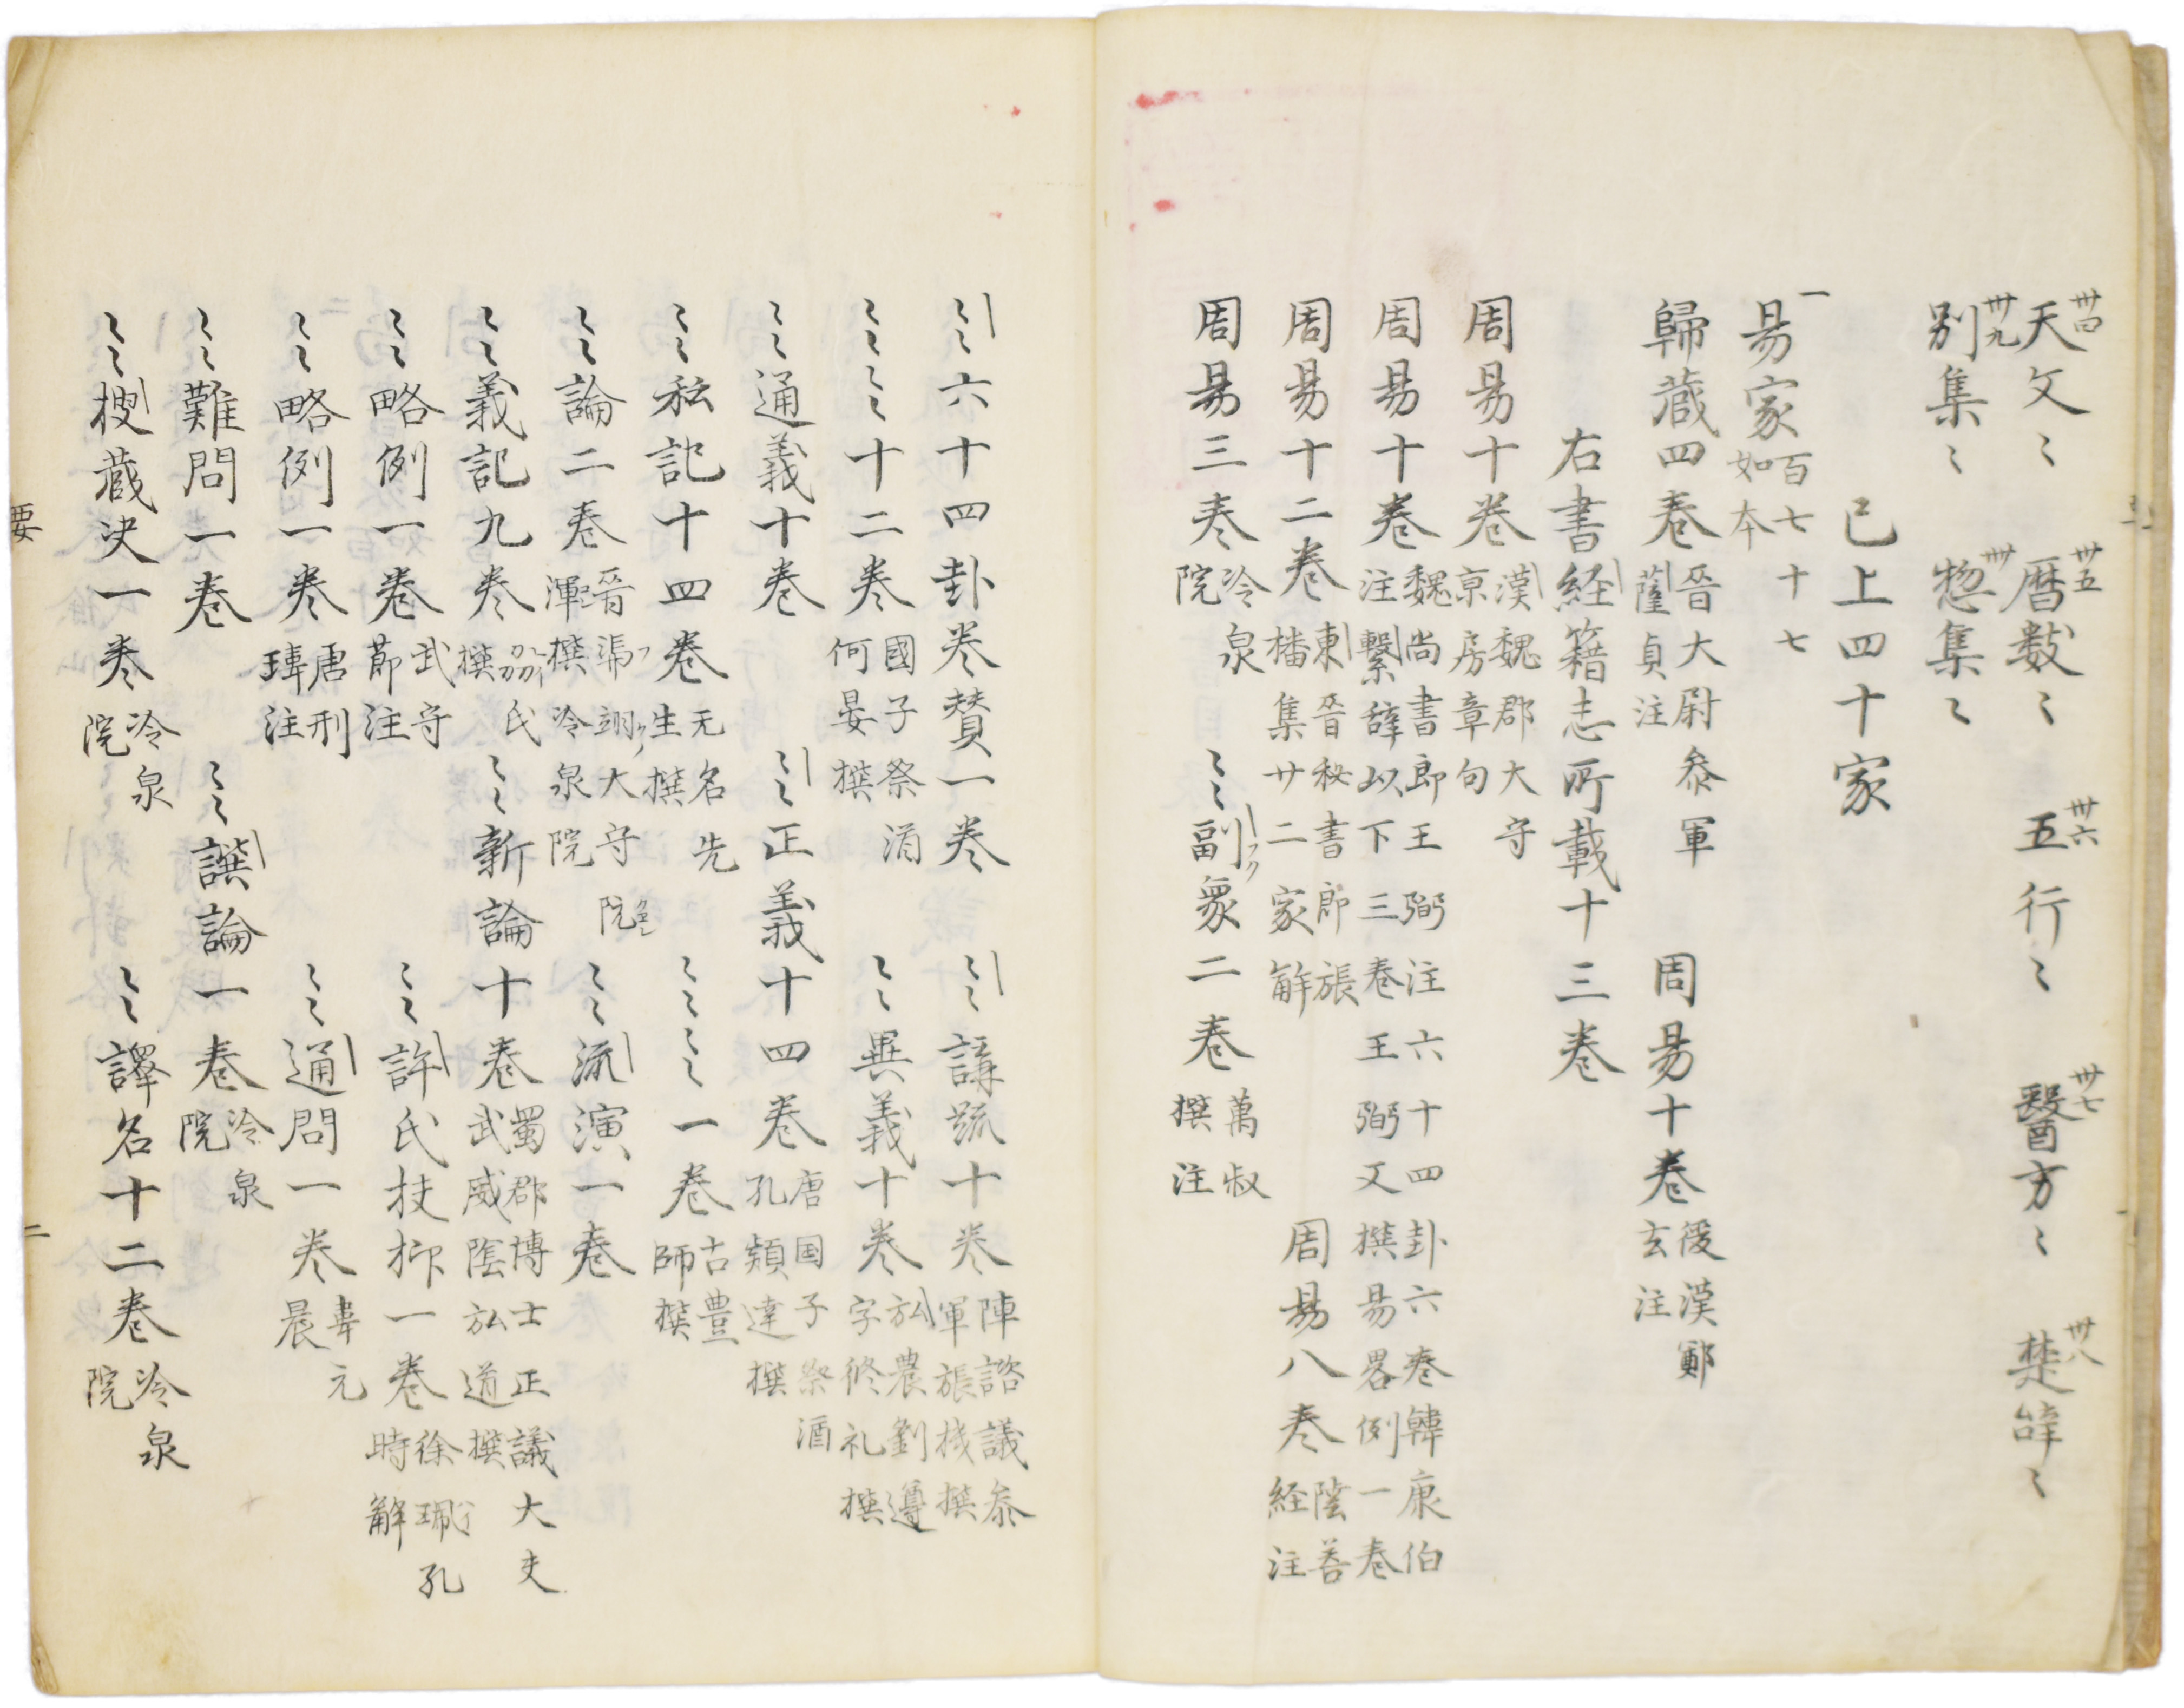 卅四天文〻 卅五暦數〻 卅六五行〻 卅七醫方〻 卅八楚辝〻
卅九別集〻 卌惣集〻
已上四十家
一易家百七十七如本
歸蔵四巻晉大尉叅軍薩貞注 周易十巻後漢鄭玄注
右書経籍志所載十三巻
周易十巻漢魏郡大守京房章句
周易十巻魏尚書郎王弼注六十四卦六巻韓康伯注繫辞以下三巻王弼又撰易畧例一巻
周易十二巻東晉秘書郎張璠集廿二家解 周易八巻陰善経注
周易三巻冷泉院 〻〻副象二巻萬叔撰注
〻〻六十四卦巻賛一巻 〻〻講䟽十巻陣諮議叅軍張機撰
〻〻〻〻十二巻國子祭酒何晏撰 〻〻異義十巻弘農劉遵字修礼撰
〻〻通義十巻 〻〻正義十四巻唐国子祭酒孔頴達撰
〻〻私記十四巻无名先生撰 〻〻〻〻一巻古豊師撰
〻〻論二巻晉馮翊大守阮渾撰冷泉院 〻〻流演一巻
〻〻義記九巻氏撰 〻〻新論十巻蜀郡博士正議大夫武威陰弘道撰
〻〻略例一巻武守節注 〻〻許氏扶抑一巻徐珮孔時解
〻〻略例一巻唐刑璹注 〻〻通問一巻韋元晨
〻〻難問一巻 〻〻譔論一巻冷泉院
〻〻搜蔵决一巻冷泉院 〻〻譯名十二巻冷泉院
要
二